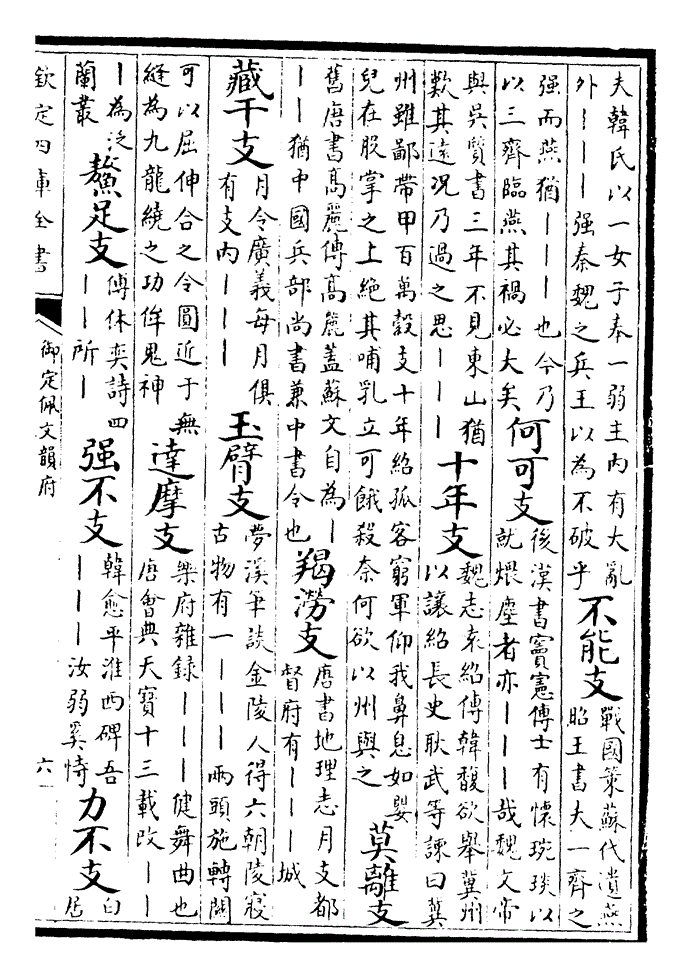 夫韓氏以一女子奉一弱主内有大亂
外丨丨丨强秦魏之兵王以為不破乎
不能支
戰國策蘇代遺燕
昭王書夫一齊之
强而燕猶丨丨丨也今乃
以三齊臨燕其禍必大矣
何可支
後漢書竇憲傳士有懷琬琰以
就煨塵者亦丨丨丨哉魏文帝
與吳質書三年不見東山猶
歎其逺况乃過之思丨丨丨丨
十年支
魏志袁紹傳韓馥欲舉冀州
以讓紹長史耿武等諫曰冀
州雖鄙帶甲百萬穀支十年紹孤客窮軍仰我鼻息如嬰
兒在股掌之上絶其哺乳立可餓殺奈何欲以州與之
莫離支
舊唐書髙麗傳髙麗蓋蘇文自為丨
丨丨猶中國兵部尚書兼中書令也
羯澇支
唐書地理志月支都
督府有丨丨丨城
藏干支
月令廣義每月俱
有支内丨丨丨
玉臂支
夢溪筆談金陵人得六朝陵寢
古物有一丨丨丨兩頭施轉關
可以屈伸合之令圓近于無
縫為九龍繞之功侔鬼神
達摩支
樂府雜録丨丨丨健舞曲也
唐會典天寳十三載改丨丨
丨為泛
蘭叢
鰲足支
傅休奕詩四
丨丨所丨
强不支
韓愈平淮西碑吾
丨丨丨汝弱奚恃
力不支
白
居
欽定四庫全書
御定佩文韻府
六